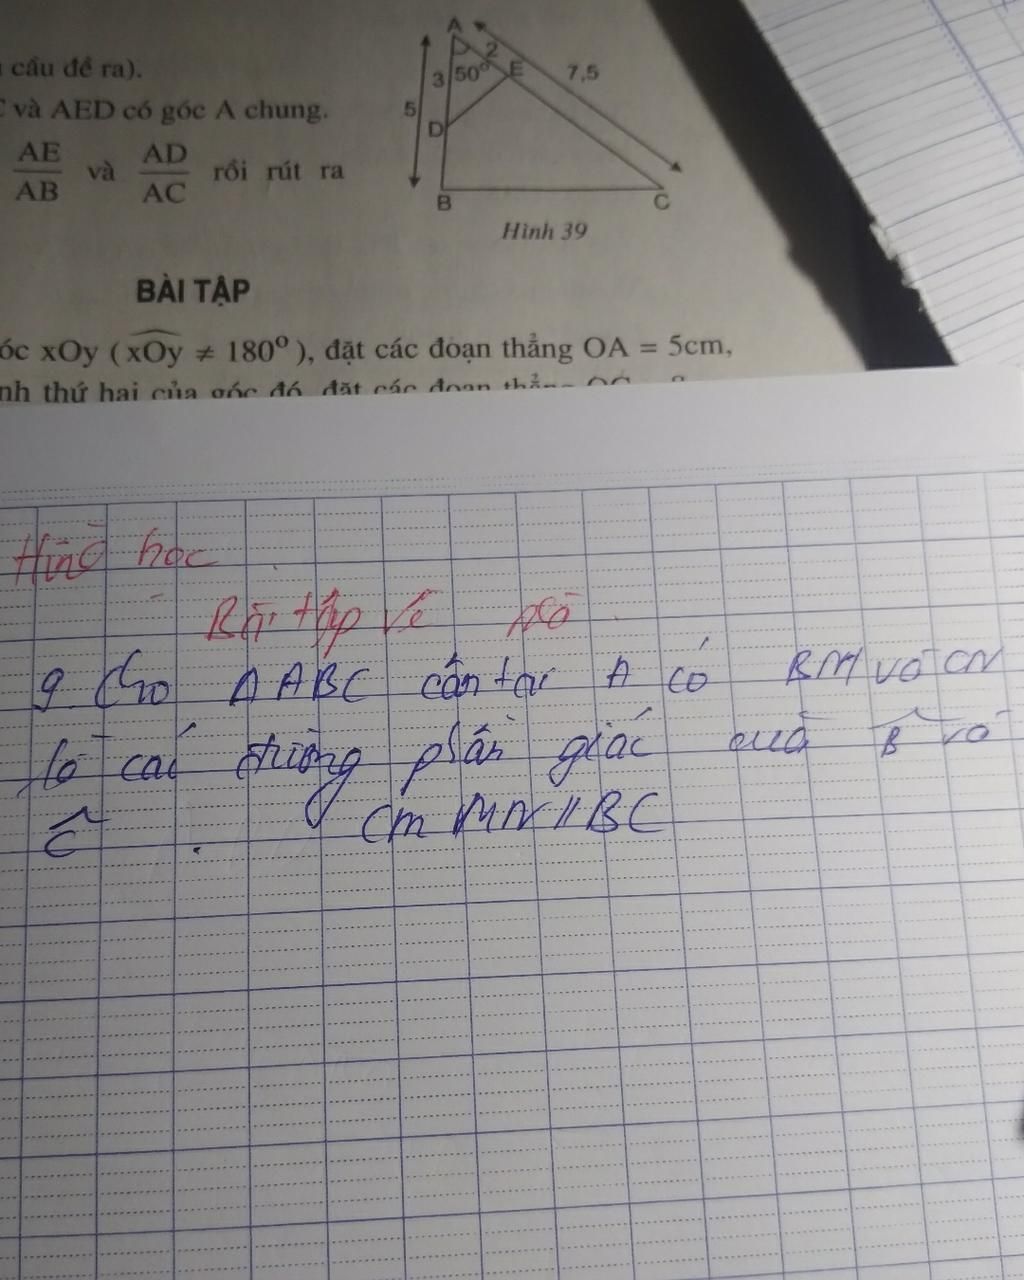 cầu đề ra).
và AED có góc A chung.
AE/AB và AD/AC rồi rút ra
A
2
3 50° E 7,5
5
D
B C
Hình 39
BÀI TẬP
óc xOy (xOy ≠ 180°), đặt các đoạn thẳng OA = 5cm,
nh thứ hai của góc đó, đặt các đoạn thẳng
Hình học
Bài tập về nhà
9 Cho Δ ABC cân tại A có BM và CN
là các đường phân giác của B̂ và
Ĉ . Cm MN // BC